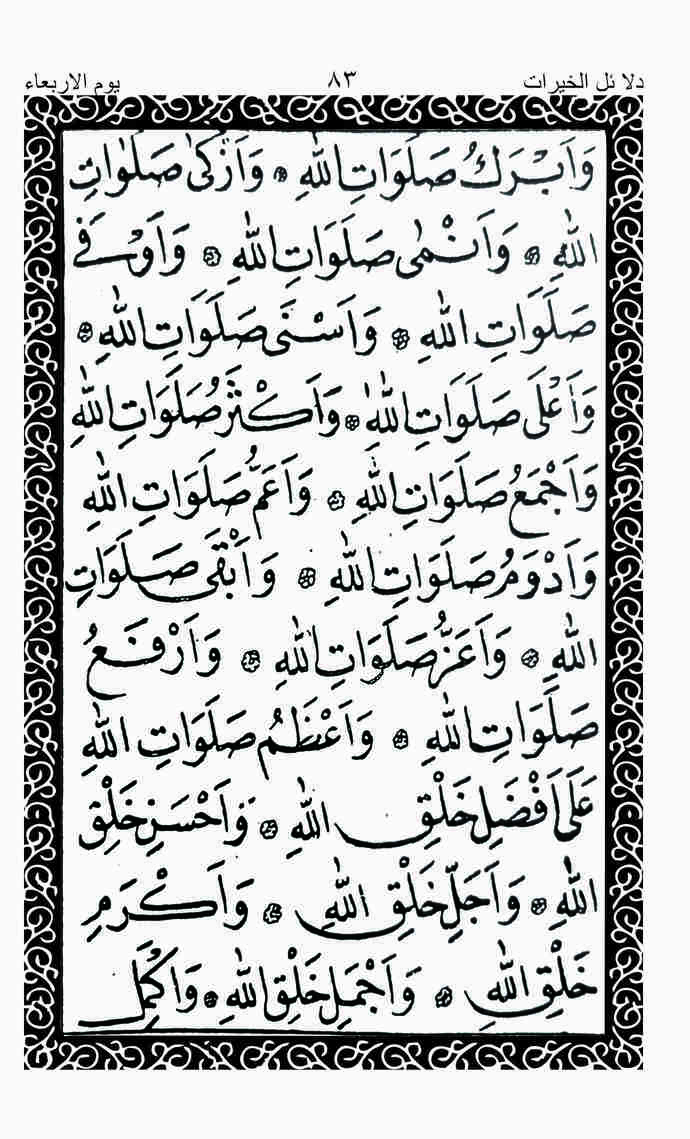 دلائل الخيرات ٨٣ يوم الاربعاء
وَاَبْرَكُ صَلَوَاتِ اللّٰهِ ۞ وَاَزْكٰى صَلَوٰاتِ
اللّٰهِ ۞ وَاَنْمٰى صَلَوَاتِ اللّٰهِ ۞ وَاَوْفٰى
صَلَوَاتِ اللّٰهِ ۞ وَاَسْنَى صَلَوَاتِ اللّٰهِ ۞
وَاَعْلَى صَلَوَاتِ اللّٰهِ ۞ وَاَكْثَرُ صَلَوَاتِ اللّٰهِ
وَاَجْمَعُ صَلَوَاتِ اللّٰهِ ۞ وَاَعَمُّ صَلَوَاتِ اللّٰهِ
وَاَدْوَمُ صَلَوَاتِ اللّٰهِ ۞ وَاَبْقَى صَلَوَاتِ
اللّٰهِ ۞ وَاَعَزُّ صَلَوَاتِ اللّٰهِ ۞ وَاَرْفَعُ
صَلَوَاتِ اللّٰهِ ۞ وَاَعْظَمُ صَلَوَاتِ اللّٰهِ
عَلَى اَفْضَلِ خَلْقِ اللّٰهِ ۞ وَاَحْسَنِ خَلْقِ
اللّٰهِ ۞ وَاَجَلِّ خَلْقِ اللّٰهِ ۞ وَاَكْرَمِ
خَلْقِ اللّٰهِ ۞ وَاَجْمَلِ خَلْقِ اللّٰهِ ۞ وَاَكْمَلِ